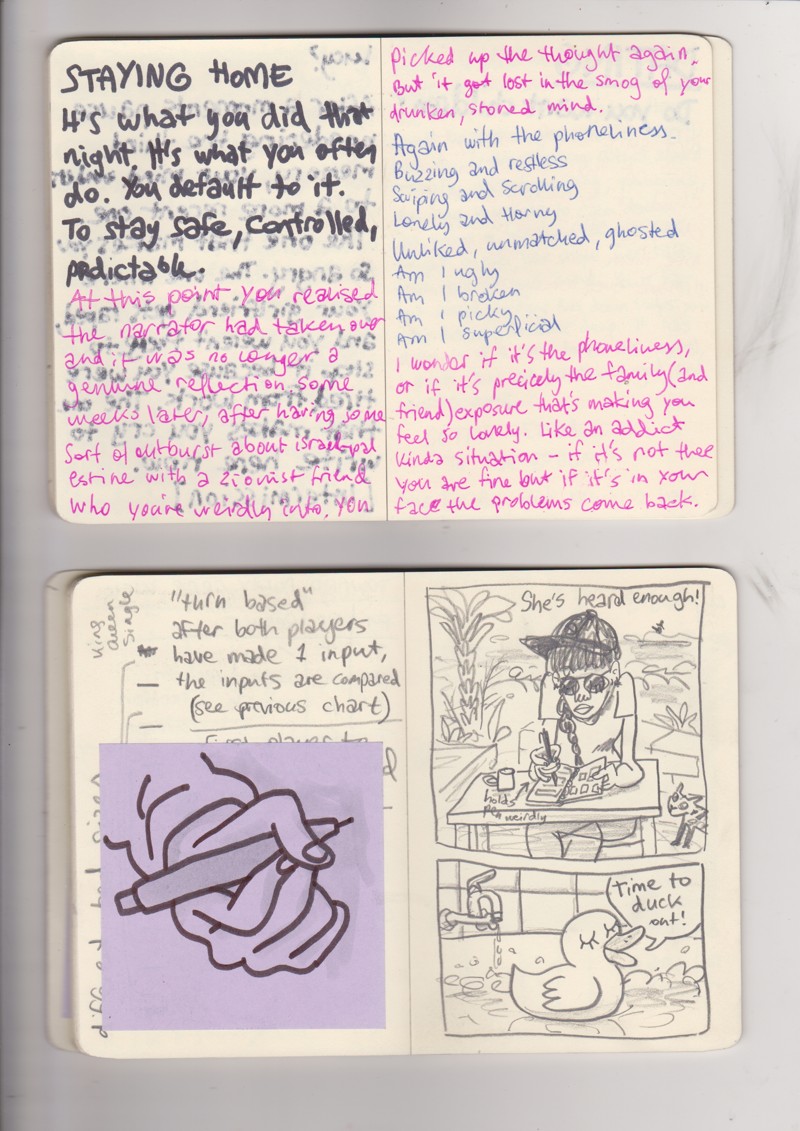 STAYING HOME
It's what you did that
night. It's what you often
do. You default to it.
To stay safe, controlled,
prdictable.
At this point you realised
the narrator had taken over
and it was no longer a
genuine reflection. Some
weeks later, after having some
sort of outburst about israel-pal
estine with a zionist friend
who you're weirdly into, you
picked up the thought again.
But it got lost in the smog of your
drunken, stoned mind.
Again with the phoneliness.
Buzzing and restless
Swiping and scrolling
Lonely and Horny
Unliked, unmatched, ghosted
Am I ugly
Am I broken
Am I picky
Am I superficial
I wonder if it's the phoneliness,
or if it's precicely the family (and
friend) exposure that's making you
feel so lonely. Like an addict
kinda situation – if it's not there
you are fine but if it's in your
face the problems come back.
King
Queen
Single
"turn based"
after both players
have made 1 input,
the inputs are compared
(see previous chart)
First player to
She's heard enough!
holds
pen weirdly
Time to
duck
out!